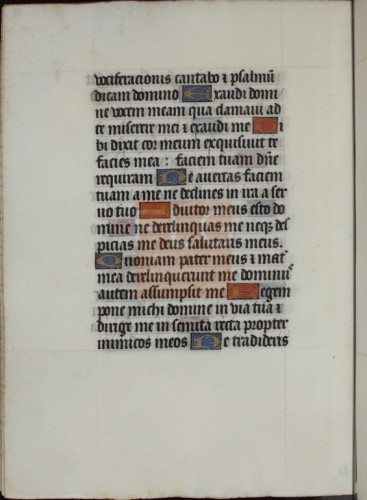 vociferacionis cantabo ⁊ psalmū
dicam domino Exaudi domi
ne vocem meam qua clamavi ad
te miserere mei ⁊ exaudi me Ti
bi dixit cor meum exquisivit te
facies mea : faciem tuam dn̄e
requiram Ne avertas faciem
tuam a me ne declines in ira a ser
vo tuo Adiutor meus esto do
mine ne derelinquas me neqȝ des
picias me deus salutaris meus.
Qoniam pater meus ⁊ mat̄
mea dereliquerunt me dominus
autem assumpsit me Legem
pone michi domine in via tua ⁊
dirige me in semita recta propter
inimicos meos Ne tradideris